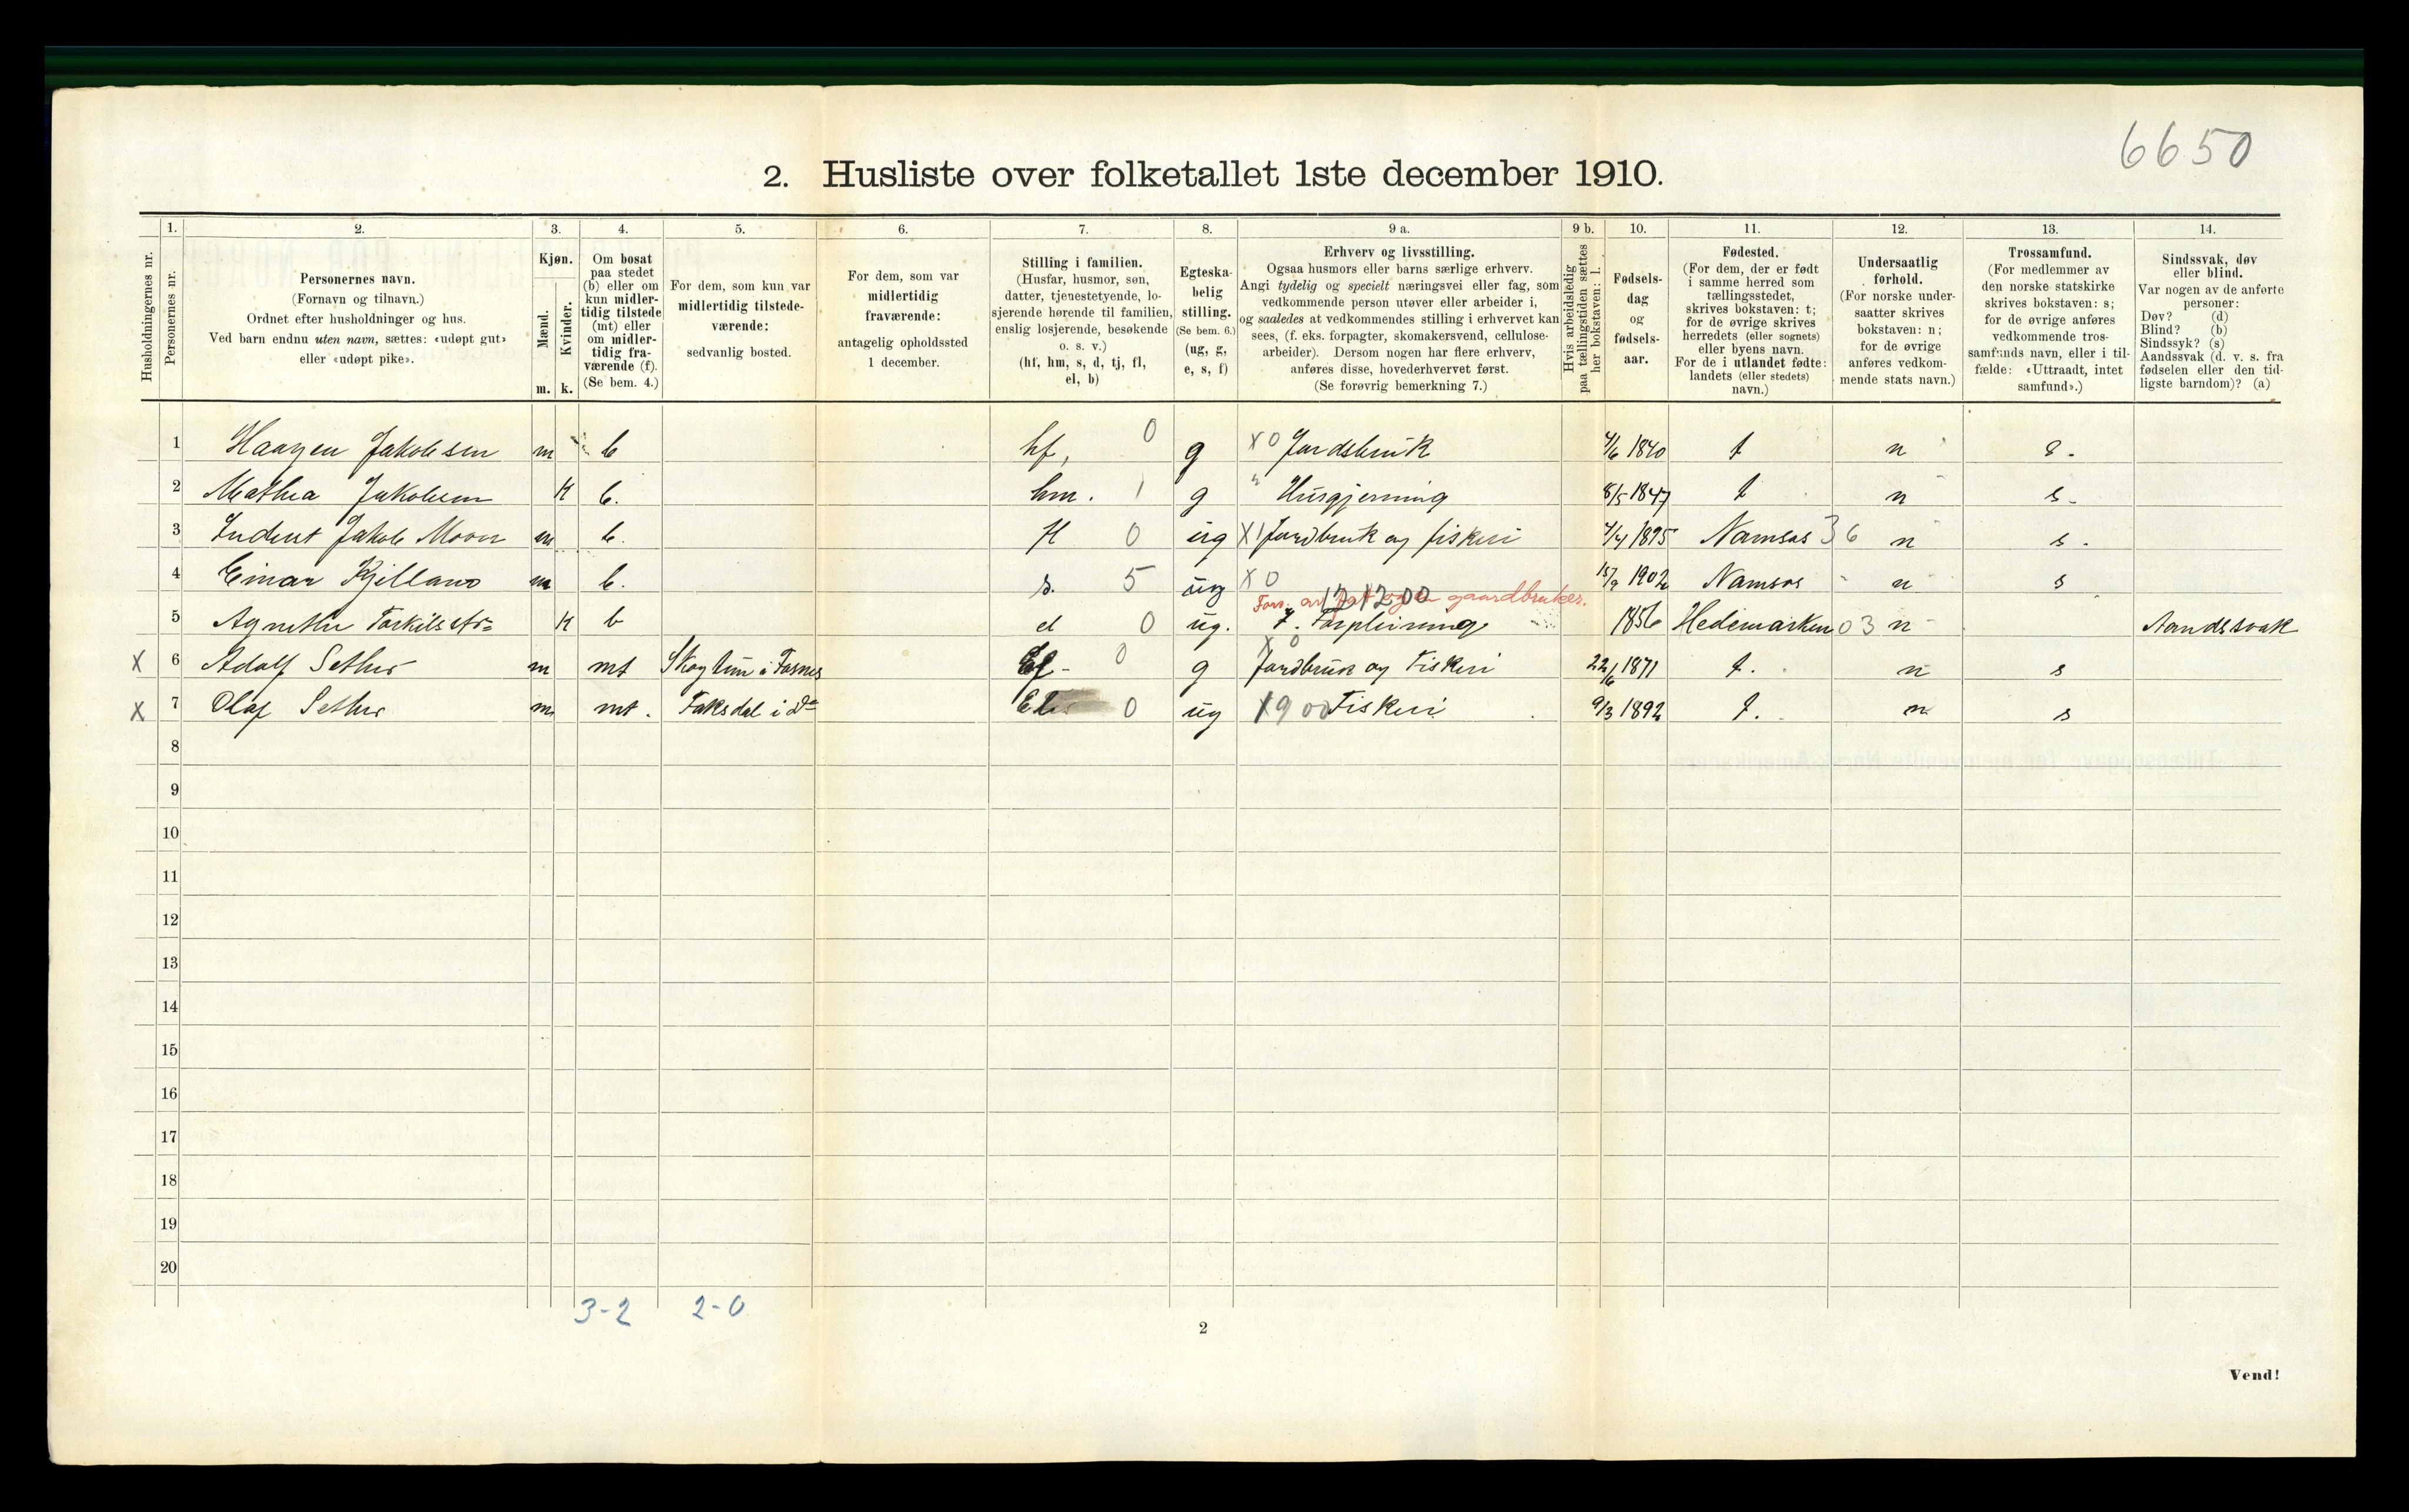 6650
2. Husliste over folketallet 1ste december 1910.
Husholdningernes nr.
1. Personernes nr.
2. Personernes navn. (Fornavn og tilnavn.) Ordnet efter husholdninger og hus. Ved barn endnu uten navn, sættes: «udøpt gut» eller «udøpt pike».
3. Kjøn. Mænd. m. Kvinder. k.
4. Om bosat paa stedet (b) eller om kun midlertidig tilstede (mt) eller om midlertidig fraværende (f). (Se bem. 4.)
5. For dem, som kun var midlertidig tilstedeværende: sedvanlig bosted.
6. For dem, som var midlertidig fraværende: antagelig opholdssted 1 december.
7. Stilling i familien. (Husfar, husmor, søn, datter, tjenestetyende, losjerende hørende til familien, enslig losjerende, besøkende o. s. v.) (hf, hm, s, d, tj, fl, el, b)
8. Egteskabelig stilling. (Se bem. 6.) (ug, g, e, s, f)
9 a. Erhverv og livsstilling. Ogsaa husmors eller barns særlige erhverv. Angi tydelig og specielt næringsvei eller fag, som vedkommende person utøver eller arbeider i, og saaledes at vedkommendes stilling i erhvervet kan sees, (f. eks. forpagter, skomakersvend, cellulosearbeider). Dersom nogen har flere erhverv, anføres disse, hovederhvervet først. (Se forøvrig bemerkning 7.)
9 b. Hvis arbeidsledig paa tællingstiden sættes her bokstaven: l.
10. Fødselsdag og fødselsaar.
11. Fødested. (For dem, der er født i samme herred som tællingsstedet, skrives bokstaven: t; for de øvrige skrives herredets (eller sognets) eller byens navn. For de i utlandet fødte: landets (eller stedets) navn.)
12. Undersaatlig forhold. (For norske undersaatter skrives bokstaven: n; for de øvrige anføres vedkommende stats navn.)
13. Trossamfund. (For medlemmer av den norske statskirke skrives bokstaven: s; for de øvrige anføres vedkommende trossamfunds navn, eller i tilfælde: «Uttraadt, intet samfund».)
14. Sindssvak, døv eller blind. Var nogen av de anførte personer: Døv? (d) Blind? (b) Sindssyk? (s) Aandssvak (d. v. s. fra fødselen eller den tidligste barndom)? (a)
1 Haagen Jakobsen m b hf, 0 g X0 Jordsbruk 4/6 1840 t n s.
2 Mathea Jakobsen k b. hm. 1 g Husgjerning 8/5 1847 t n s-
3 Jakob Moen m b. fl 0 ug X1 Jordbruk og fiskeri 4/4 1895 Namsos 36 n s.
4 Einar m b. s. 5 ug X0 15/9 1902 Namsos n s
gaardbruker.
5 k b el 0 ug. Forpleining 1856 Hedemarken 03 n Aandssvak
X 6 Adolf Sether m mt i Fosnes 0 g X0 Jordbruk og Fiskeri 22/6 1871 t. n s
X 7 Olaf Sether m mt. Faksdal i do 0 ug X900 Fiskeri 9/3 1892 t. n s
8
9
10
11
12
13
14
15
16
17
18
19
20
3-2 2-0
2
Vend!